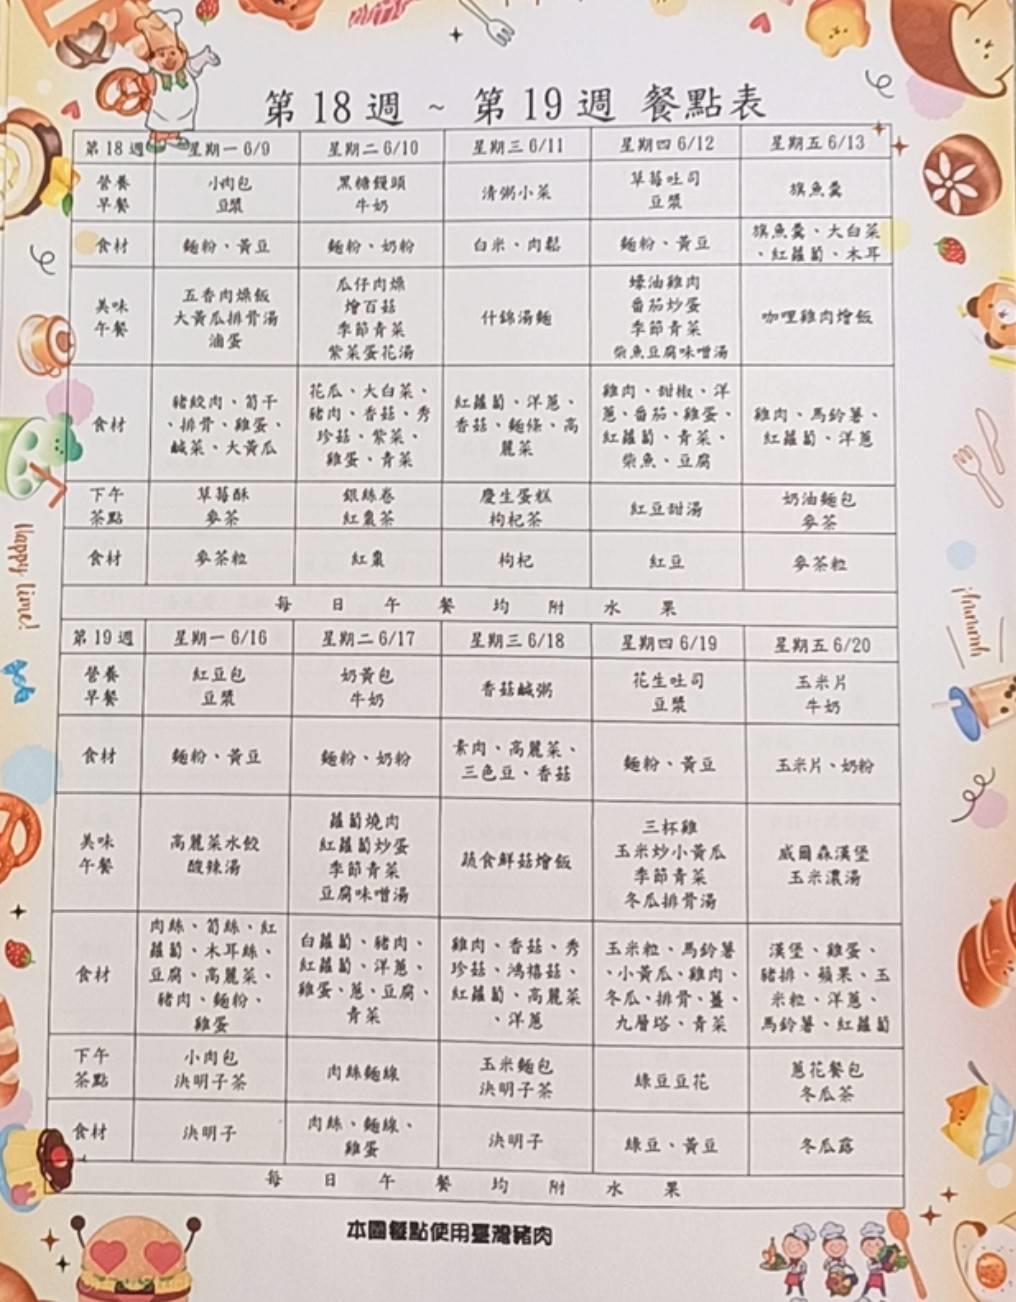 第 18 週 ~ 第 19 週 餐點表
第 18 週 星期一 6/9 星期二 6/10 星期三 6/11 星期四 6/12 星期五 6/13
營養 早餐
小肉包
豆漿
黑糖饅頭
牛奶
清粥小菜
草莓吐司
豆漿
旗魚羹
食材
麵粉、黃豆
麵粉、奶粉
白米、肉鬆
麵粉、黃豆
旗魚羹、大白菜
、紅蘿蔔、木耳
美味
午餐
五香肉燥飯
大黃瓜排骨湯
滷蛋
瓜仔肉燥
燴百菇
季節青菜
紫菜蛋花湯
什錦湯麵
蠔油雞肉
番茄炒蛋
季節青菜
柴魚豆腐味噌湯
咖哩雞肉燴飯
食材
豬絞肉、筍干
、排骨、雞蛋、
鹹菜、大黃瓜
花瓜、大白菜、
豬肉、香菇、秀
珍菇、紫菜、
雞蛋、青菜
紅蘿蔔、洋蔥、
香菇、麵條、高
麗菜
雞肉、甜椒、洋
蔥、番茄、雞蛋、
紅蘿蔔、青菜、
柴魚、豆腐
雞肉、馬鈴薯、
紅蘿蔔、洋蔥
下午
茶點
草莓酥
麥茶
銀絲卷
紅棗茶
慶生蛋糕
枸杞茶
紅豆甜湯
奶油麵包
麥茶
食材
麥茶粒
紅棗
枸杞
紅豆
麥茶粒
每 日 午 餐 均 附 水 果
第 19 週 星期一 6/16 星期二 6/17 星期三 6/18 星期四 6/19 星期五 6/20
營養
早餐
紅豆包
豆漿
奶黃包
牛奶
香菇鹹粥
花生吐司
豆漿
玉米片
牛奶
食材
麵粉、黃豆
麵粉、奶粉
素肉、高麗菜、
三色豆、香菇
麵粉、黃豆
玉米片、奶粉
美味
午餐
高麗菜水餃
酸辣湯
蘿蔔燒肉
紅蘿蔔炒蛋
季節青菜
豆腐味噌湯
蔬食鮮菇燴飯
三杯雞
玉米炒小黃瓜
季節青菜
冬瓜排骨湯
威爾森漢堡
玉米濃湯
食材
肉絲、筍絲、紅
蘿蔔、木耳絲、
豆腐、高麗菜、
豬肉、麵粉、
雞蛋
白蘿蔔、豬肉、
紅蘿蔔、洋蔥、
雞蛋、蔥、豆腐、
青菜
雞肉、香菇、秀
珍菇、鴻禧菇、
紅蘿蔔、高麗菜
、洋蔥
玉米粒、馬鈴薯
、小黃瓜、雞肉、
冬瓜、排骨、薑、
九層塔、青菜
漢堡、雞蛋、
豬排、蘋果、玉
米粒、洋蔥、
馬鈴薯、紅蘿蔔
下午
茶點
小肉包
決明子茶
肉絲麵線
玉米麵包
決明子茶
綠豆豆花
蔥花餐包
冬瓜茶
食材
決明子
肉絲、麵線、
雞蛋
決明子
綠豆、黃豆
冬瓜露
每 日 午 餐 均 附 水 果
本園餐點使用臺灣豬肉
Happy time!